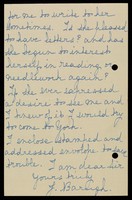 for me to write to her
sometimes. Is she pleased
to have letters? and has
she begun to interest
herself in reading, or
needlework again?
If she ever expressed
a desire to see me and
I knew of it I would try
to come to York.
I enclose stamped and
addressed envelope to
trouble. I am dear Sir
Yours truly